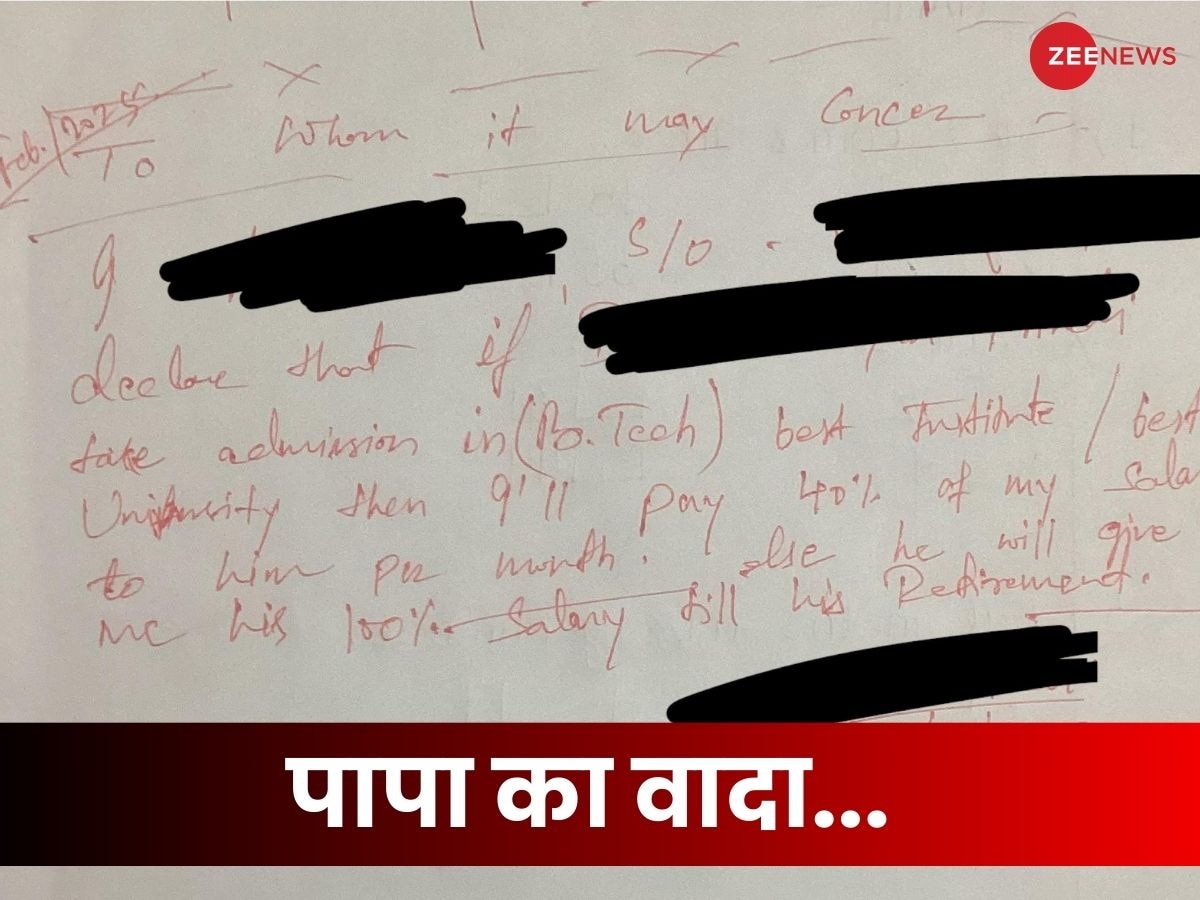 ZEENEWS
Feb. 2025
To Whom it may Concer
I S/O -
declare that if
take admission in (B.Tech) best Institute / best
University then I'll pay 40% of my Sala
to him per month. else he will give
me his 100% Salary till his Retirement.
पापा का वादा...